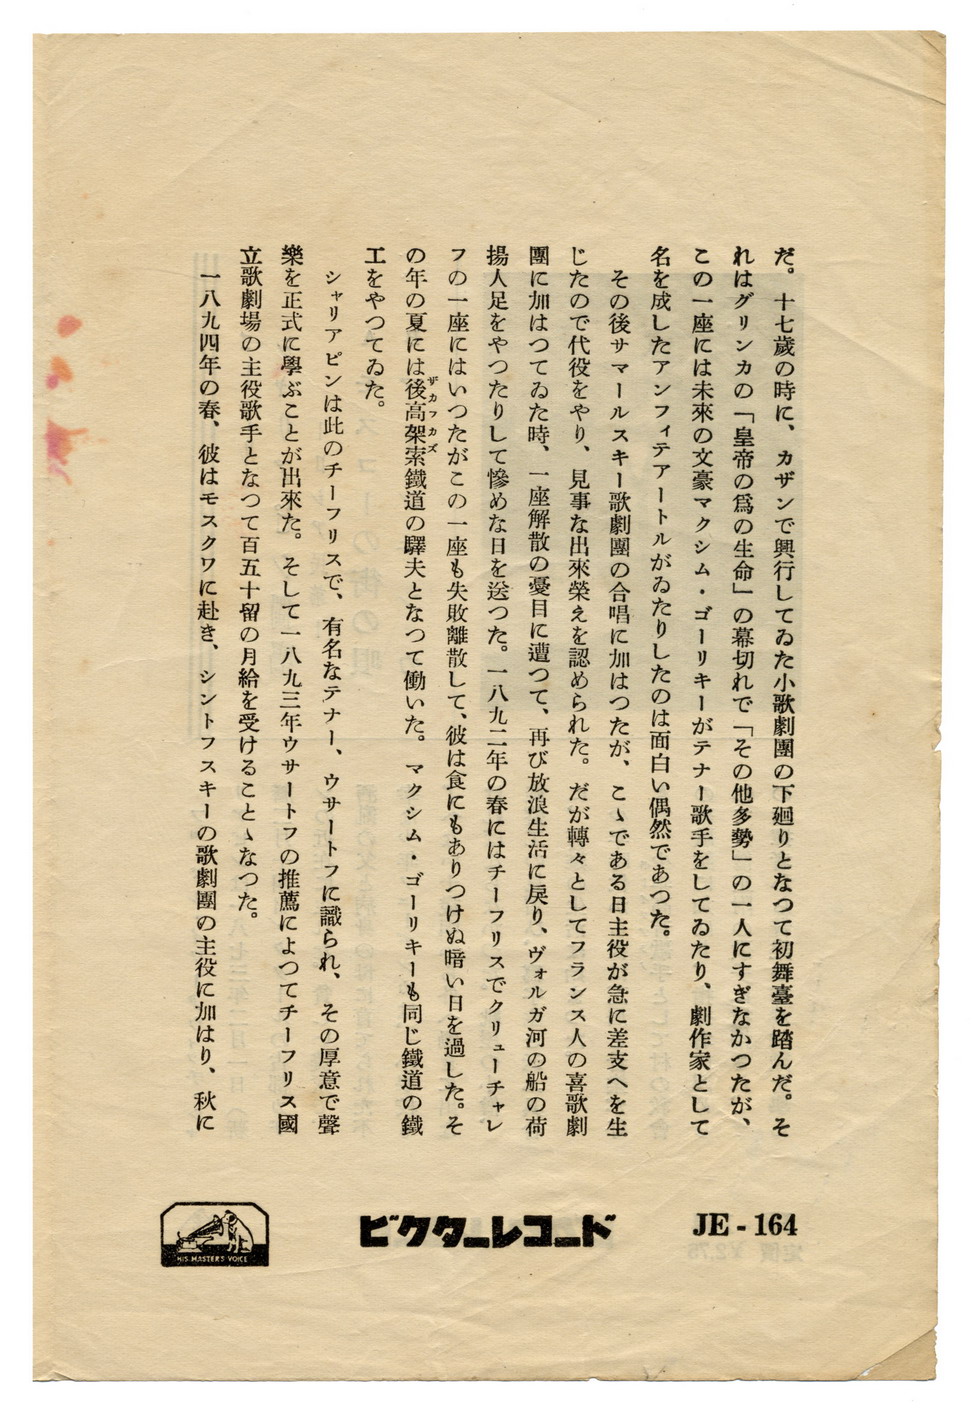 だ。十七歲の時に、カザンで興行してゐた小歌劇團の下廻りとなつて初舞臺を踏んだ。そ
れはグリンカの「皇帝の爲の生命」の幕切れで「その他多勢」の一人にすぎなかつたが、
この一座には未來の文豪マクシム・ゴーリキーがテナー歌手をしてゐたり、劇作家として
名を成したアンフィテアートルがゐたりしたのは面白い偶然であつた。
その後サマールスキー歌劇團の合唱に加はつたが、こゝである日主役が急に差支へを生
じたので代役をやり、見事な出來榮えを認められた。だが轉々としてフランス人の喜歌劇
團に加はつてゐた時、一座解散の憂目に遭つて、再び放浪生活に戻り、ヴォルガ河の船の荷
揚人足をやつたりして慘めな日を送つた。一八九二年の春にはチーフリスでクリューチャレ
フの一座にはいつたがこの一座も失敗離散して、彼は食にもありつけぬ暗い日を過した。そ
の年の夏には後高架索鐵道の驛夫となつて働いた。マクシム・ゴーリキーも同じ鐵道の鐵
ザカフカズ
工をやつてゐた。
シャリアピンは此のチーフリスで、有名なテナー、ウサートフに識られ、その厚意で聲
樂を正式に學ぶことが出來た。そして一八九三年ウサートフの推薦によつてチーフリス國
立歌劇場の主役歌手となつて百五十留の月給を受けることゝなつた。
一八九四年の春、彼はモスクワに赴き、シントフスキーの歌劇團の主役に加はり、秋に
JE-164
ビクターレコード
HIS MASTER'S VOICE